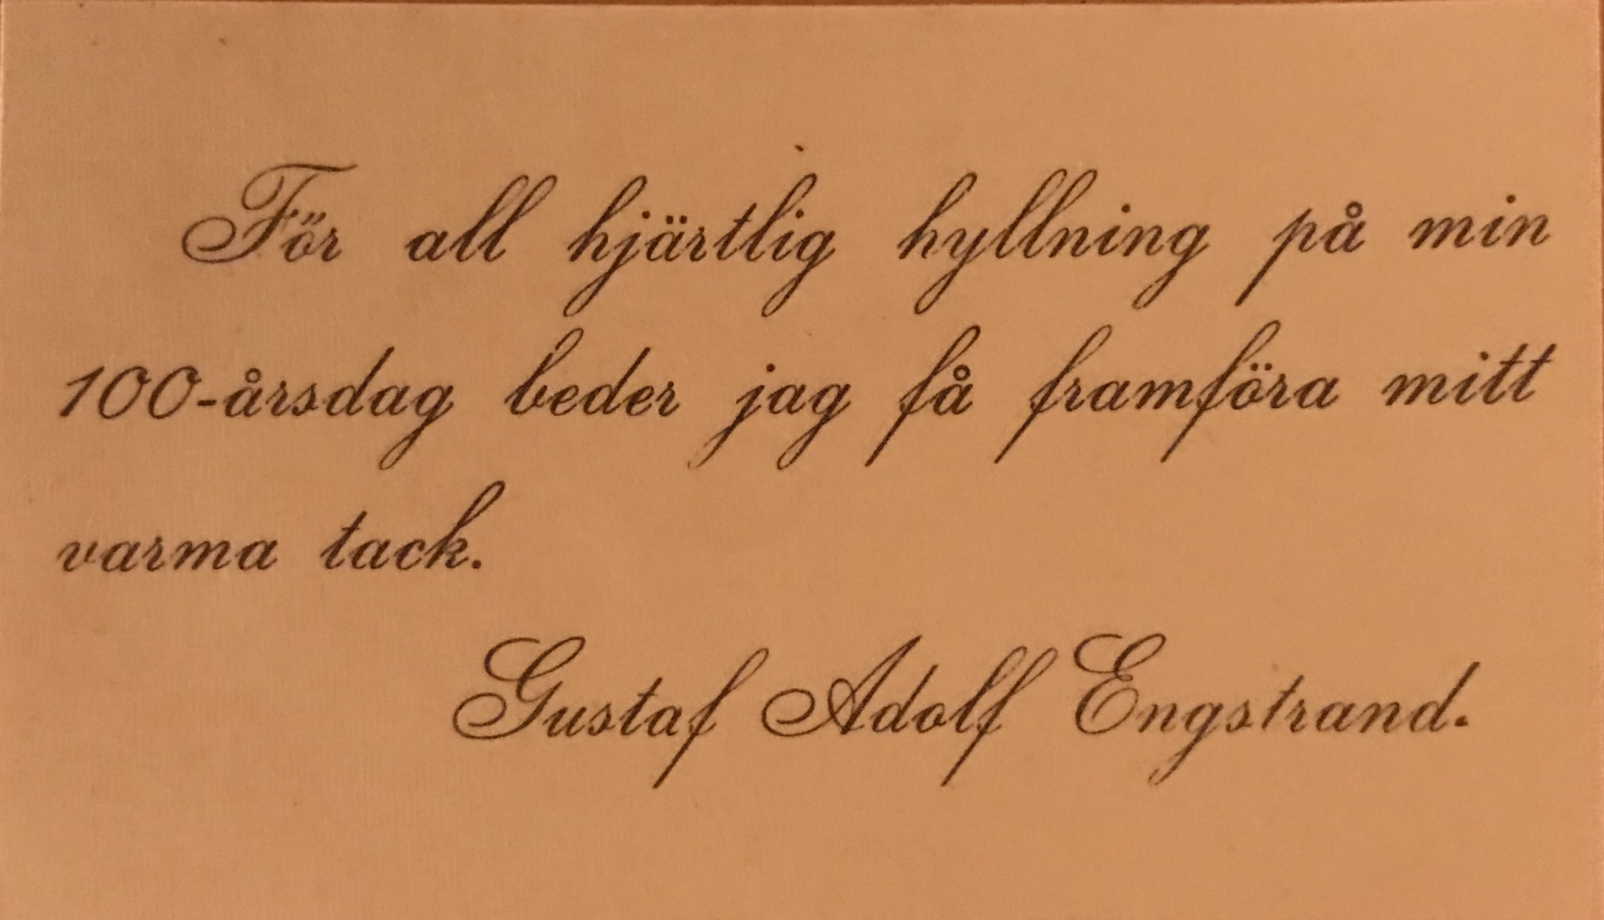 För all hjärtlig hyllning på min
100-årsdag beder jag få framföra mitt
varma tack.
Gustaf Adolf Engstrand.